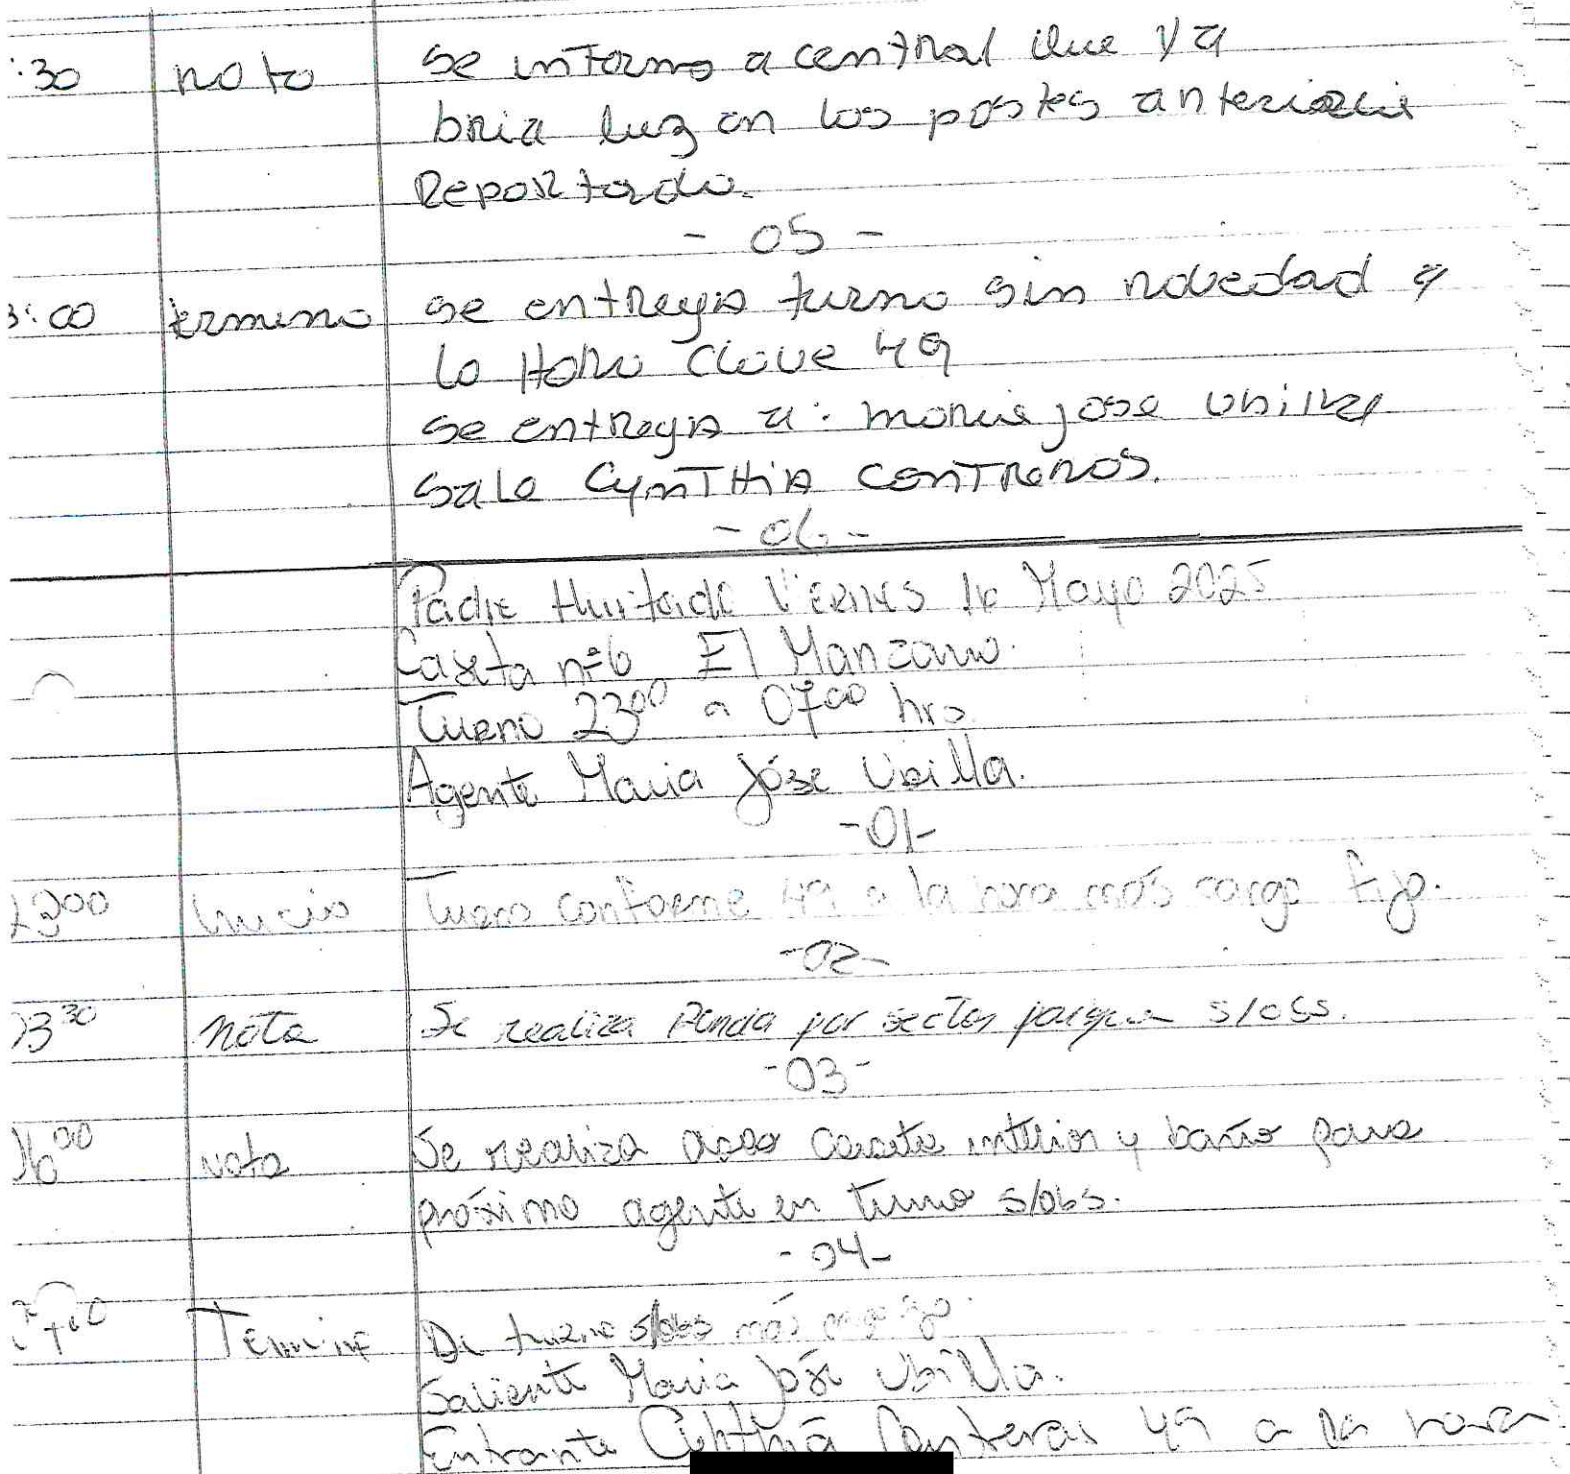 :30 nota se informo a central que ya
bria luz en los postes anteriori
Reportado.
- 05 -
3:00 termino se entrega turno sin novedad a
la Hora Clave 49
se entrega a: maria jose ubilla
sale CYNTHIA CONTRERAS.
- 06 -
Padre Hurtado Viernes 16 Mayo 2025
Caseta n=6 El Manzano.
Turno 23⁰⁰ a 07⁰⁰ hrs.
Agente Maria Jóse Ubilla.
-01-
2300 Inicio Turno conforme 49 a la hora más cargo fijo.
-02-
23³⁰ nota Se realiza Ronda por sector s/obs.
-03-
06⁰⁰ nota Se realiza aseo caseta interior y baño para
próximo agente en turno s/obs.
-04-
Termino De turno s/obs más
Saliente Maria José Ubilla.
Entrante Cynthia Conteras 49 a la hora